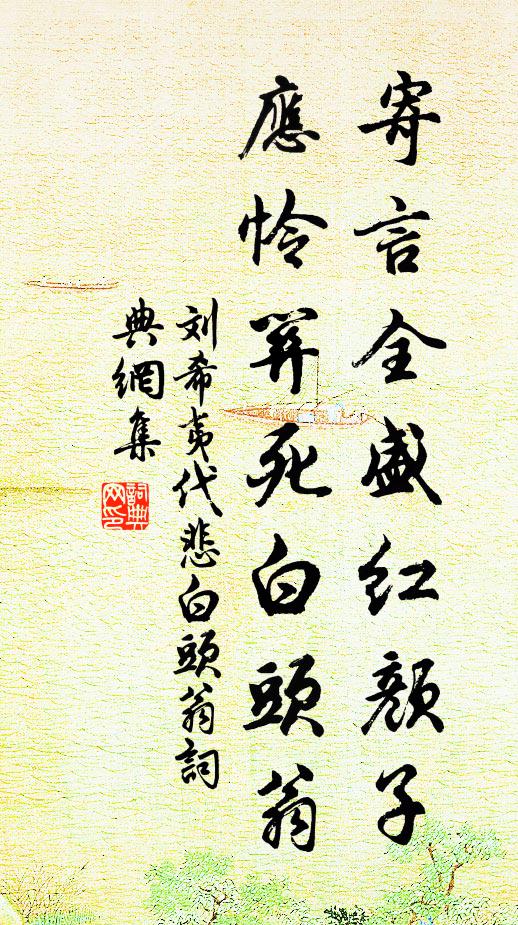 寄言全盛红顏子
應怜半死白頭翁
刘希夷代悲白頭翁詞
典網集
詞典网印